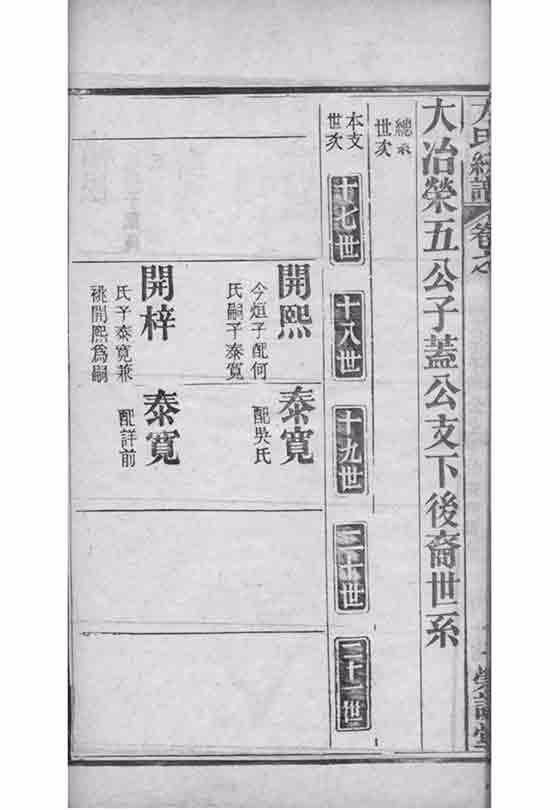 氏宗譜 卷之
大冶榮五公子蓋公支下後裔世系
總系世次
本支世次
十七世
十八世
十九世
二十世
二十一世
開熙
今烜子配何
氏嗣子泰寬
泰寬
配吳氏
開梓
氏子泰寬兼
祧開熙為嗣
泰寬
配詳前